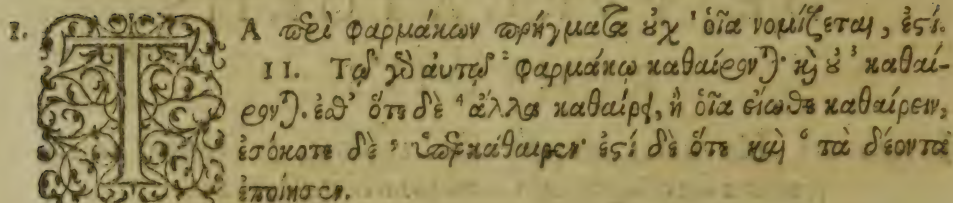 I. ΤΑ περὶ φαρμάκων πρήγματα οὐχ ¹ οἷα νομίζεται, ἐςί.
II. Τῷ γὸ αὐτῷ ² φαρμάκῳ καθαίρονται καὶ οὐ ³ καθαί-
ρονται. ἐσθ' ὅτε δὲ ⁴ ἄλλα καθαίρει, ἢ οἷα εἴωθε καθαίρειν,
ἐσόκοτε δὲ ⁵ ὑπερεκάθαιρεν· ἐςί δὲ ὅτε καὶ ⁶ τὰ δέοντα
ἐποίησεν.